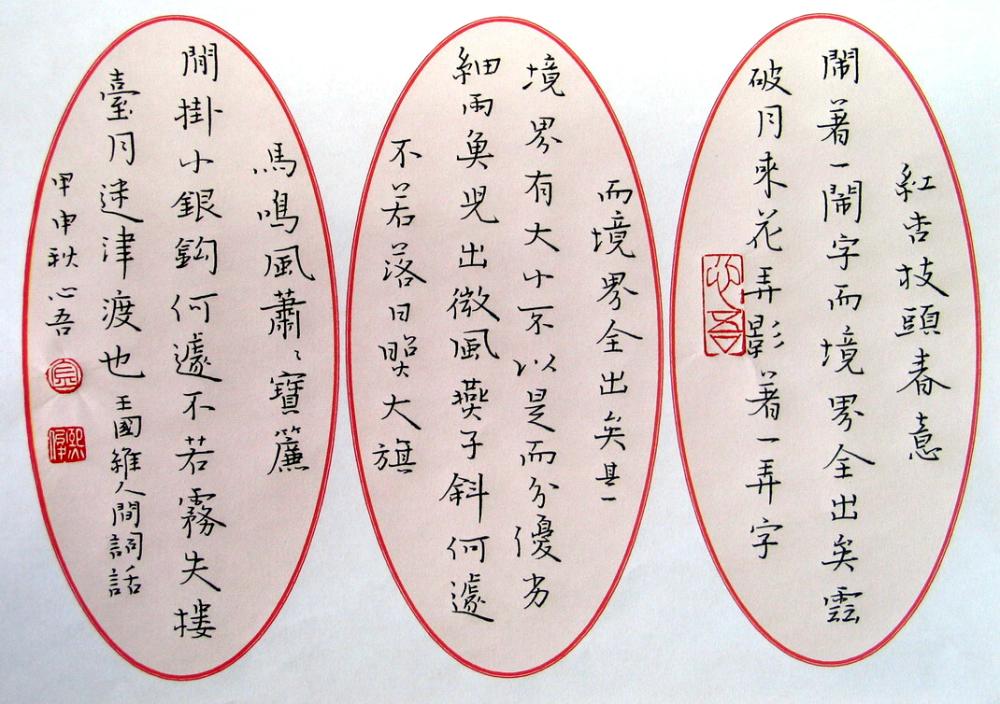 紅杏枝頭春意
鬧著一鬧字而境界全出矣雲
破月來花弄影著一弄字
心吾
而境界全出矣其一
境界有大小不以是而分優劣
細雨魚兒出微風燕子斜何遽
不若落日照大旗
馬鳴風蕭〻寶簾
閒掛小銀鈎何遽不若霧失樓
臺月迷津渡也 王國維人間詞話
甲申秋 心吾